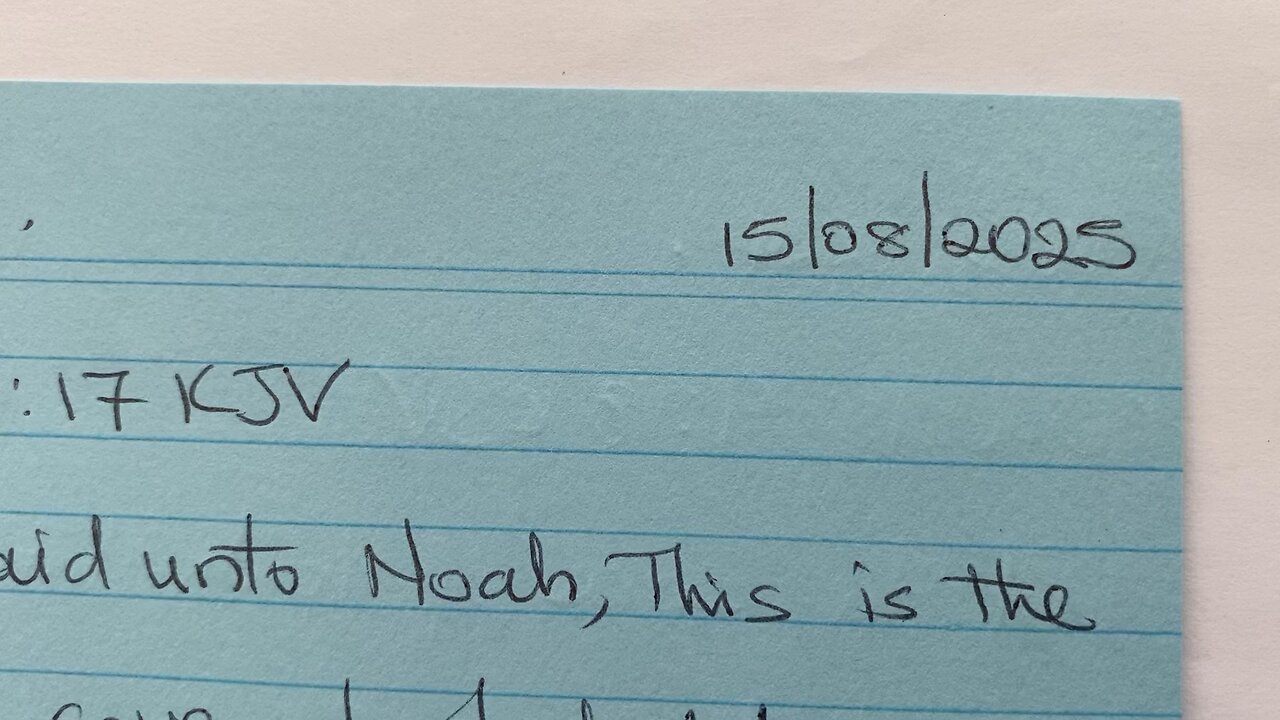 15/08/2025
:17 KJV
aid unto Noah, This is the